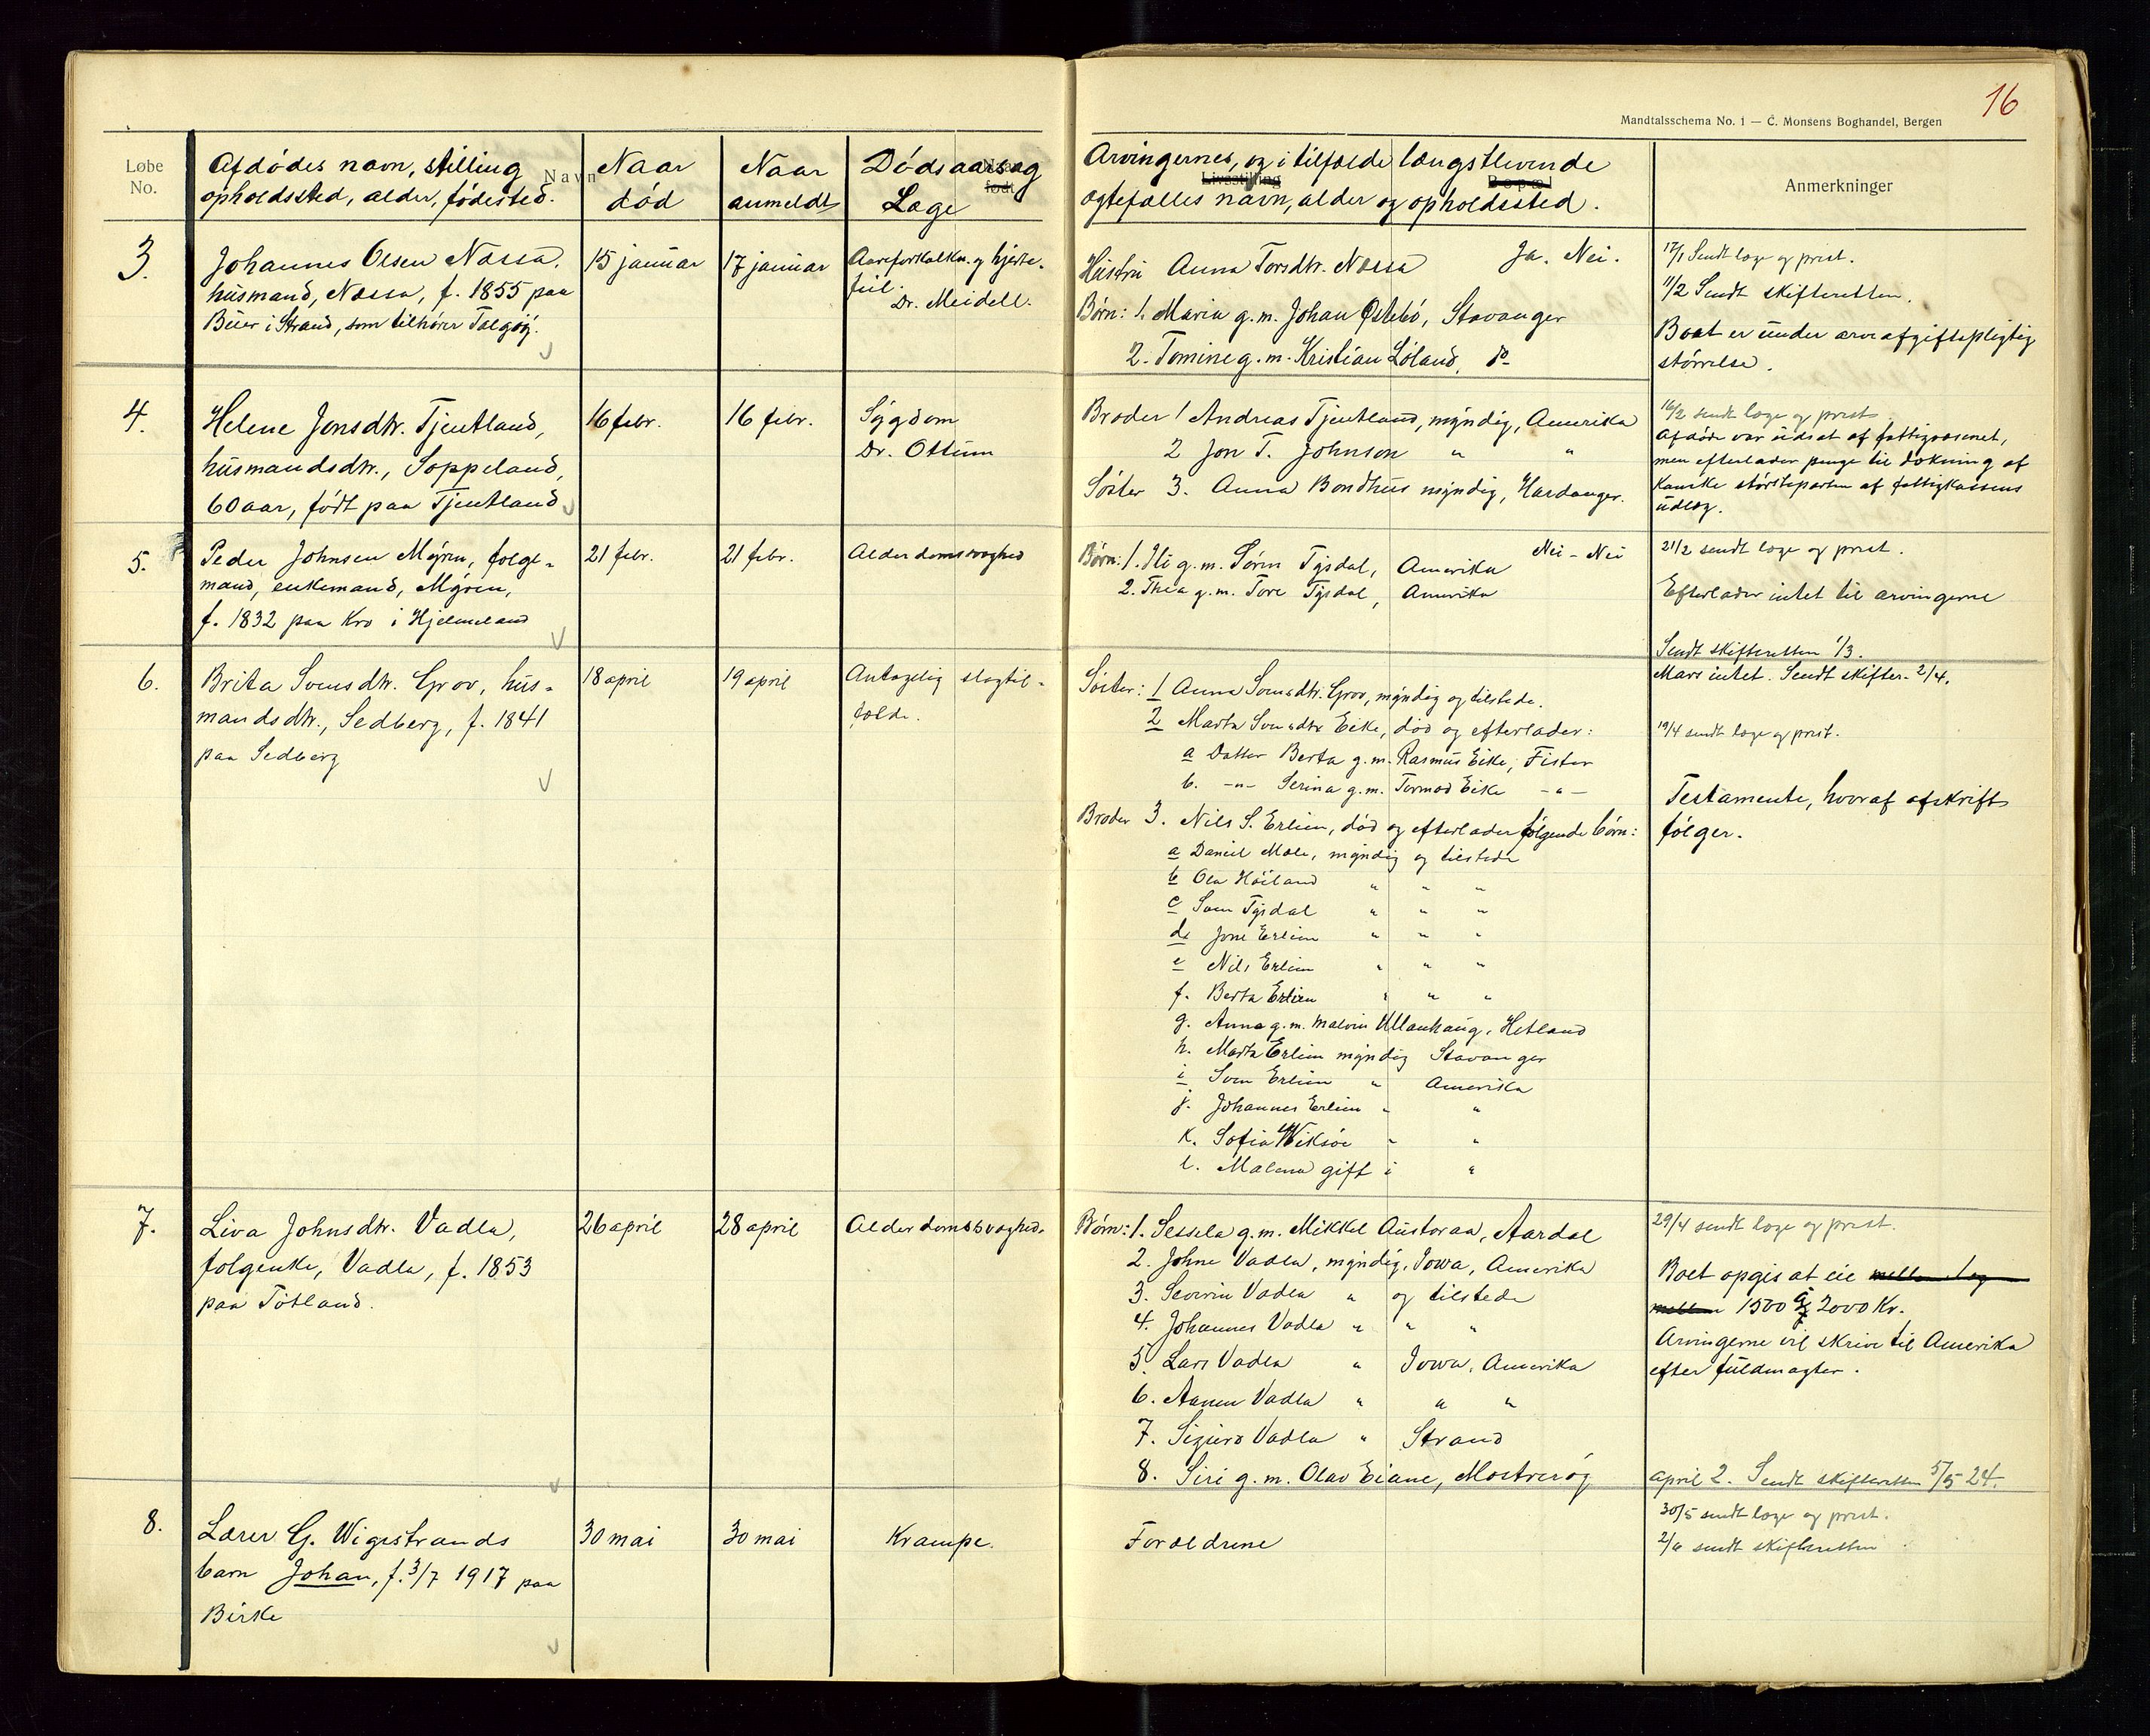 16
Mandtalsschema No. 1 — C. Monsens Boghandel, Bergen
Løbe No.
Afdødes navn, stilling
opholdssted, alder, fødested.
Navn
Naar død
Naar anmeldt
Dødsaarsag
Læge
Arvingernes, og i tilfælde længstlevende
ægtefælles navn, alder og opholdssted.
Anmerkninger
3.
Johannes Olsen Næssa,
husmand, Næssa, f. 1855 paa
i Strand, som tilhører Talgøy.
15 januar
17 januar
Aareforkalkn. og hjerte-
feil.
Dr. Meidell.
Hustru Anna Torsdtr. Næssa Ja. Nei.
Børn: 1. Marin g.m. Johan Østebø, Stavanger
2. Tomine g.m. Kristian Løland, do
17/1 Sendt læge og prest.
11/2 Sendt skifteretten.
Boet er under arveafgiftspligtig
størrelse.
4.
Helene Jonsdtr. Tjentland,
husmandsdtr., Soppeland,
60 aar, født paa Tjentland
16 febr.
16 febr.
Sygdom
Dr. Ottum
Broder 1 Andreas Tjentland, myndig, Amerika
2 Jon T. Johnson " "
Søster 3. Anna Bondhus myndig, Hardanger.
16/2 sendt læge og prest.
Afdøde var udsat af fattigvæsenet,
men efterlader penge til dækning af
kanske størsteparten af fattigkassens
udlæg.
5.
Peder Johnsen Myren, folge-
mand, enkemand, Myren,
f. 1832 paa Kro i Hjelmeland
21 febr.
21 febr.
Alderdomssvaghed
Børn: 1. Ili g.m. Søren Tysdal, Amerika Nei - Nei
2. Thea g.m. Tore Tysdal, Amerika
21/2 sendt læge og prest.
Efterlader intet til arvingerne
Sendt skifteretten 1/3.
Mars intet. Sendt skifter. 2/4.
6.
Brita Svensdtr. Grov, hus-
mandsdtr., Sedberg, f. 1841
paa Sedberg
18 april
19 april
Antagelig slagtil-
fælde.
Søster: 1 Anna Svensdtr. Grov, myndig og tilstede.
2 Marta Svensdtr Eike, død og efterlader:
a Datter Berta g.m. Rasmus Eike, Fister
b. -"- Serina g.m. Tormod Eike -"-
Broder 3. Nils S. Erlien, død og efterlader følgende børn:
a Daniel Mæle, myndig og tilstede
b Ola Høiland " " "
c Sven Tysdal " " "
d. Jone Erlien " " "
e Nils Erlien " " "
f. Berta Erlien " " "
g. Anna g.m. Malvin Ullenhaug, Hetland
h. Marta Erlien myndig Stavanger
i Sven Erlien " Amerika
j. Johannes Erlien " "
k. Sofia Wiksøe " "
l. Malena gift i "
19/4 sendt læge og prest.
Testamente, hvoraf afskrift
følger.
7.
Liva Johnsdtr. Vadla,
folgenke, Vadla, f. 1853
paa Tøtland.
26 april
28 april
Alderdomssvaghed.
Børn: 1. Sessela g.m. Mikkel Austoraa, Aardal
2. Johne Vadla, myndig, Iowa, Amerika
3. Severin Vadla " og tilstede
4. Johannes Vadla " " "
5. Lars Vadla " Iowa, Amerika
6. Aanen Vadla " " "
7. Sigurd Vadla " Strand
8. Siri g.m. Olav Eiane, Mosterøy
29/4 sendt læge og prest.
Boet opgis at eie
1500 à 2000 Kr.
Arvingerne vil skrive til Amerika
efter fuldmagter.
April 2. Sendt skifteretten 5/5 24.
8.
Lærer G. Wigestrands
barn Johan, f. 3/7 1917 paa
Birke
30 mai
30 mai
Krampe.
Forældrene
30/5 sendt læge og prest.
2/6 sendt skifteretten